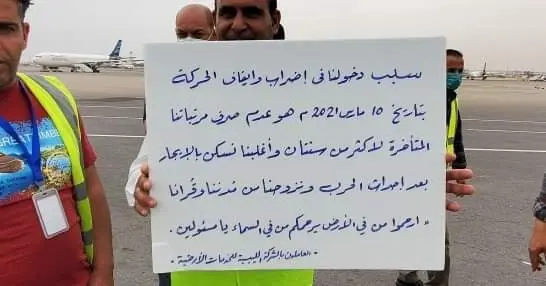 سبب دخولنا في إضراب وإيقاف الحركة
بتاريخ 15 مارس 2021 م هو عدم صرف مرتباتنا
المتأخرة لأكثر من سنتان وأغلبنا نسكن بالإيجار
بعد إحداث الحرب ونزوحنا من مدننا وقرانا
" ارحموا من في الأرض يرحمكم من في السماء يا مسئولين .
- العاملون بالشركة الليبية للخدمات الأرضية -